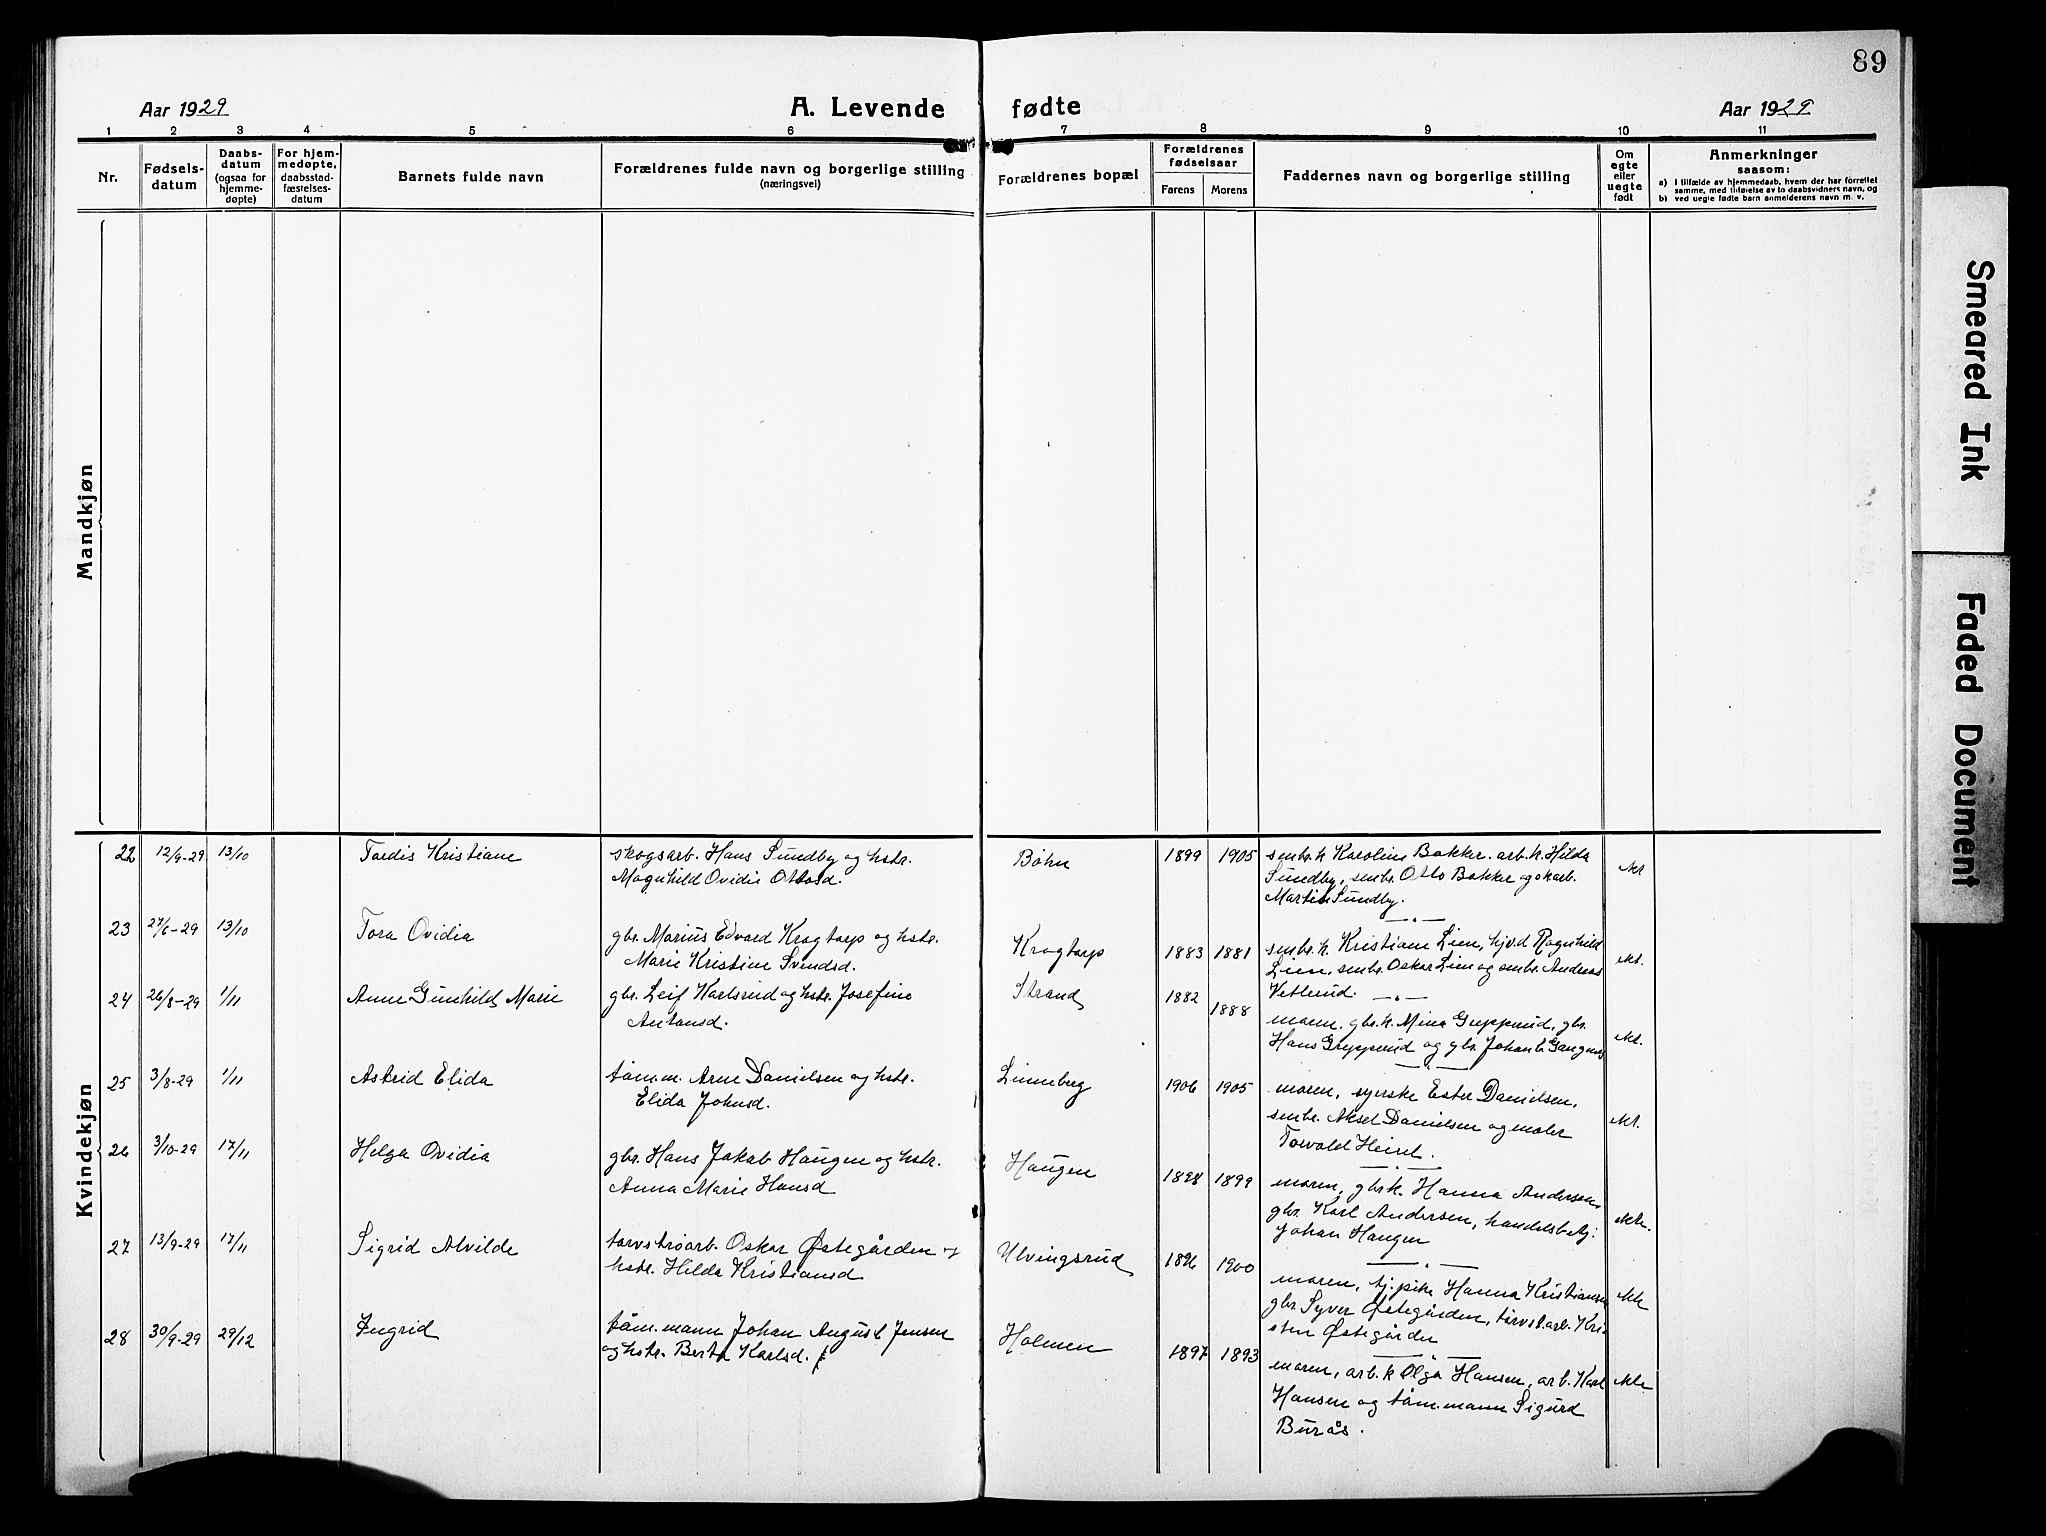 89
Aar 1929
A. Levende fødte
Aar 1929
1 2 3 4 5 6 7 8 9 10 11
Nr.
Fødsels-
datum
Daabs-
datum
(ogsaa for
hjemme-
døpte)
For hjem-
medøpte,
daabsstad-
fæstelses-
datum
Barnets fulde navn
Forældrenes fulde navn og borgerlige stilling
(næringsvei)
Forældrenes bopæl
Forældrenes
fødselsaar
Farens Morens
Faddernes navn og borgerlige stilling
Om
egte
eller
uegte
født
Anmerkninger
saasom:
a) I tilfælde av hjemmedaab, hvem der har forrettet
samme, med tilføielse av to daabsvidners navn, og
b) ved uegte fødte barn anmelderens navn m. v.
Mandkjøn
Kvindekjøn
22 12/9-29 13/10 Tordis Kristiane skogsarb. Hans Sundby og hstr. Bøhn 1899 1905 smbr.k Karoline Bakker. arb.k. Hilda
Magnhild Ovidie Ottosd. Sundby, smbr. Otto Bakker og skarb. Ekt
Martin Sundby.
23 27/6-29 13/10 Tora Ovidia gbr. Marius Edvard Krogtorp og hstr. Krogtorp 1883 1881 smbr.k. Kristiane Lien, hjv.d Ragnhild
Marie Kristine Svendsd. Lien, smbr. Oskar Lien og smbr. Andreas Ekt.
Vetlerud.
24 26/8-29 1/11 Anne Gunhild Marie gbr. Leif Karlsrud og hstr. Josefine Strand 1882 1888
Antonsd. moren, gbr.k. Mina Grepperud, gbr.
Hans Grepperud og gbr. Johan L. Gangnæs Ekt.
25 3/8-29 1/11 Astrid Elida tøm.m. Arne Danielsen og hstr. Linneberg 1906 1905 moren, syerske Ester Danielsen,
Elida Johnsd. smbr. Aksel Danielsen og maler Ekt.
Torvald Heiret.
26 3/10-29 17/11 Helga Ovidia gbr. Hans Jakob Haugen og hstr. Haugen 1898 1899 moren, gbr.k. Hanna Andersen,
Anna Marie Hansd gbr. Karl Andersen, handelsbetj. Ekt.
Johan Haugen
27 13/9-29 17/11 Sigrid Alvilde torvstrøarb. Oskar Østegården og Ulvingsrud 1896 1900
hstr. Hilda Kristiansd moren, tj.pike Hanna Kristiansen Ekt
gbr. Syver Østegården, torvst.arb. Kri-
sten Østegården
28 30/9-29 29/12 Ingrid tøm.mann Johan August Jensen Holmen 1897 1893
og hstr. Berta Karlsd. moren, arb.k Olga Hansen, arb. Karl Ekt
Hansen og tøm.mann Sigurd
Burås.
Smeared Ink
Faded Document